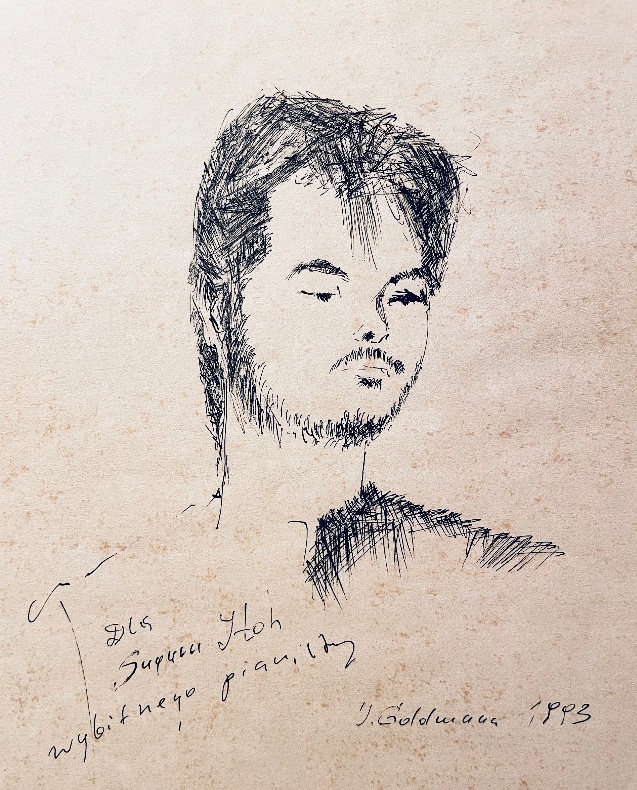 Dla
Suguru Itoh
wybitnego pianisty
J. Goldmann 1993